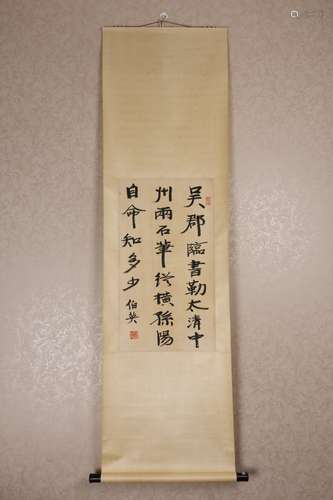 吴郡临書勒太清中
州兩石華從横孫陽
自命知多少 伯英